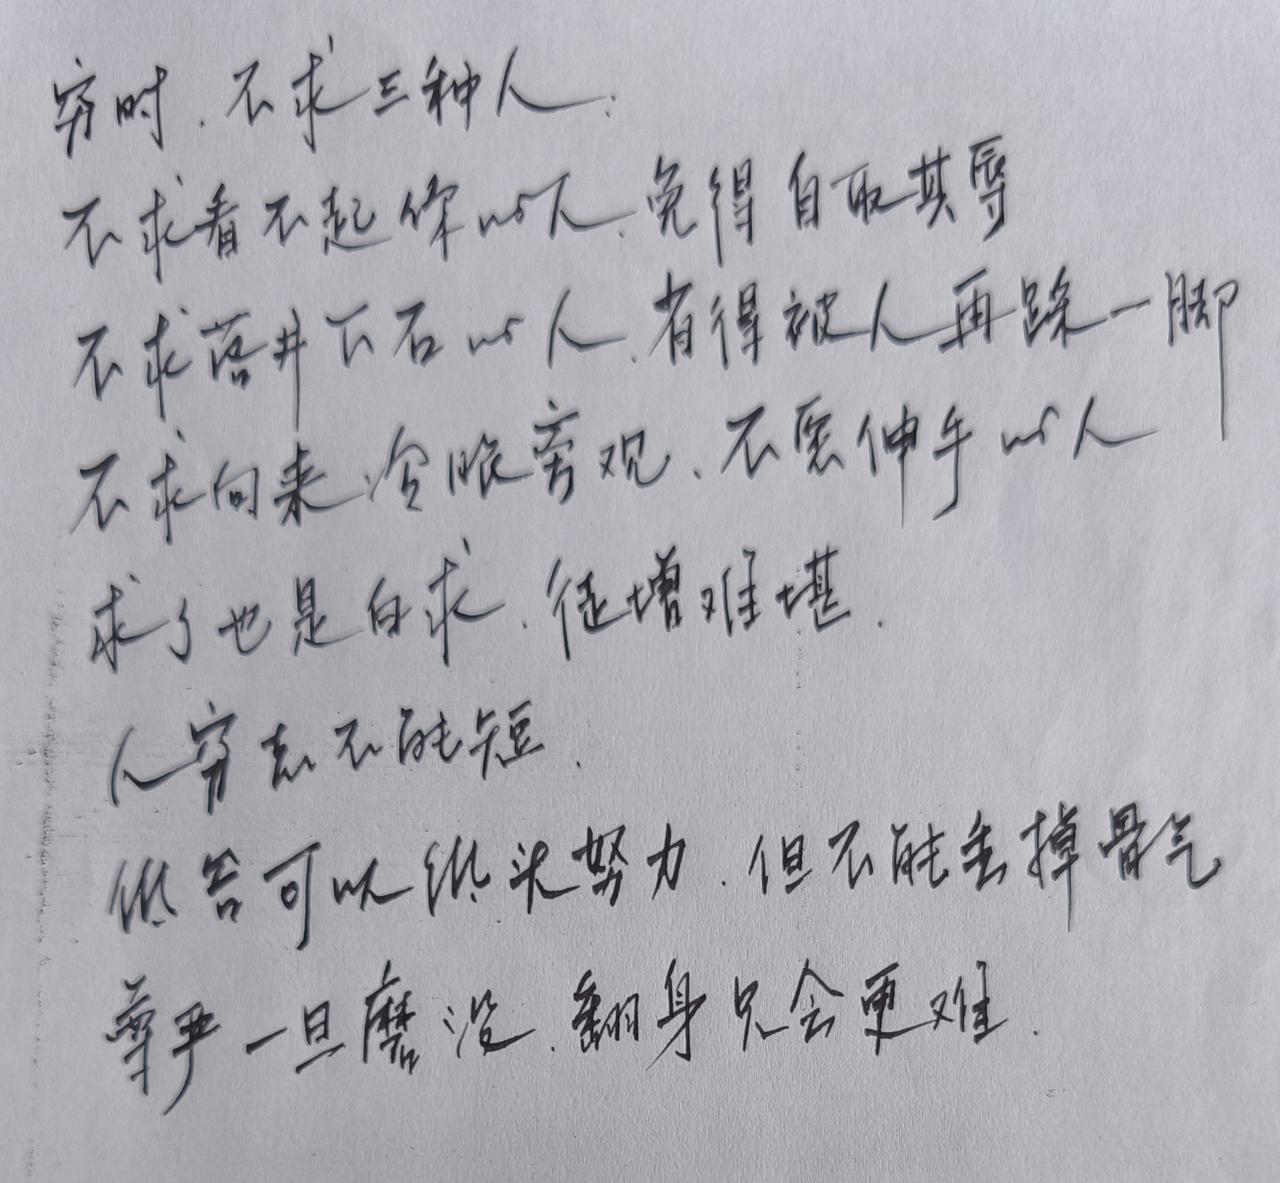 穷时，不求三种人：
不求看不起你的人，免得自取其辱
不求落井下石的人，省得被人再踩一脚
不求向来冷眼旁观、不愿伸手的人
求了也是白求，徒增难堪。
人穷志不能短。
低谷可以低头努力，但不能丢掉骨气
尊严一旦磨没，翻身只会更难。